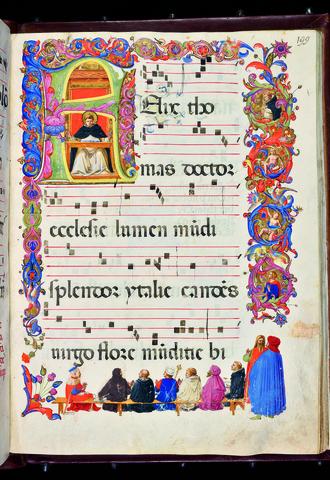 199
Felix tho
mas doctor
ecclesie lumen mūdi
splendor ytalie candēs
uirgo flore mūditie bi